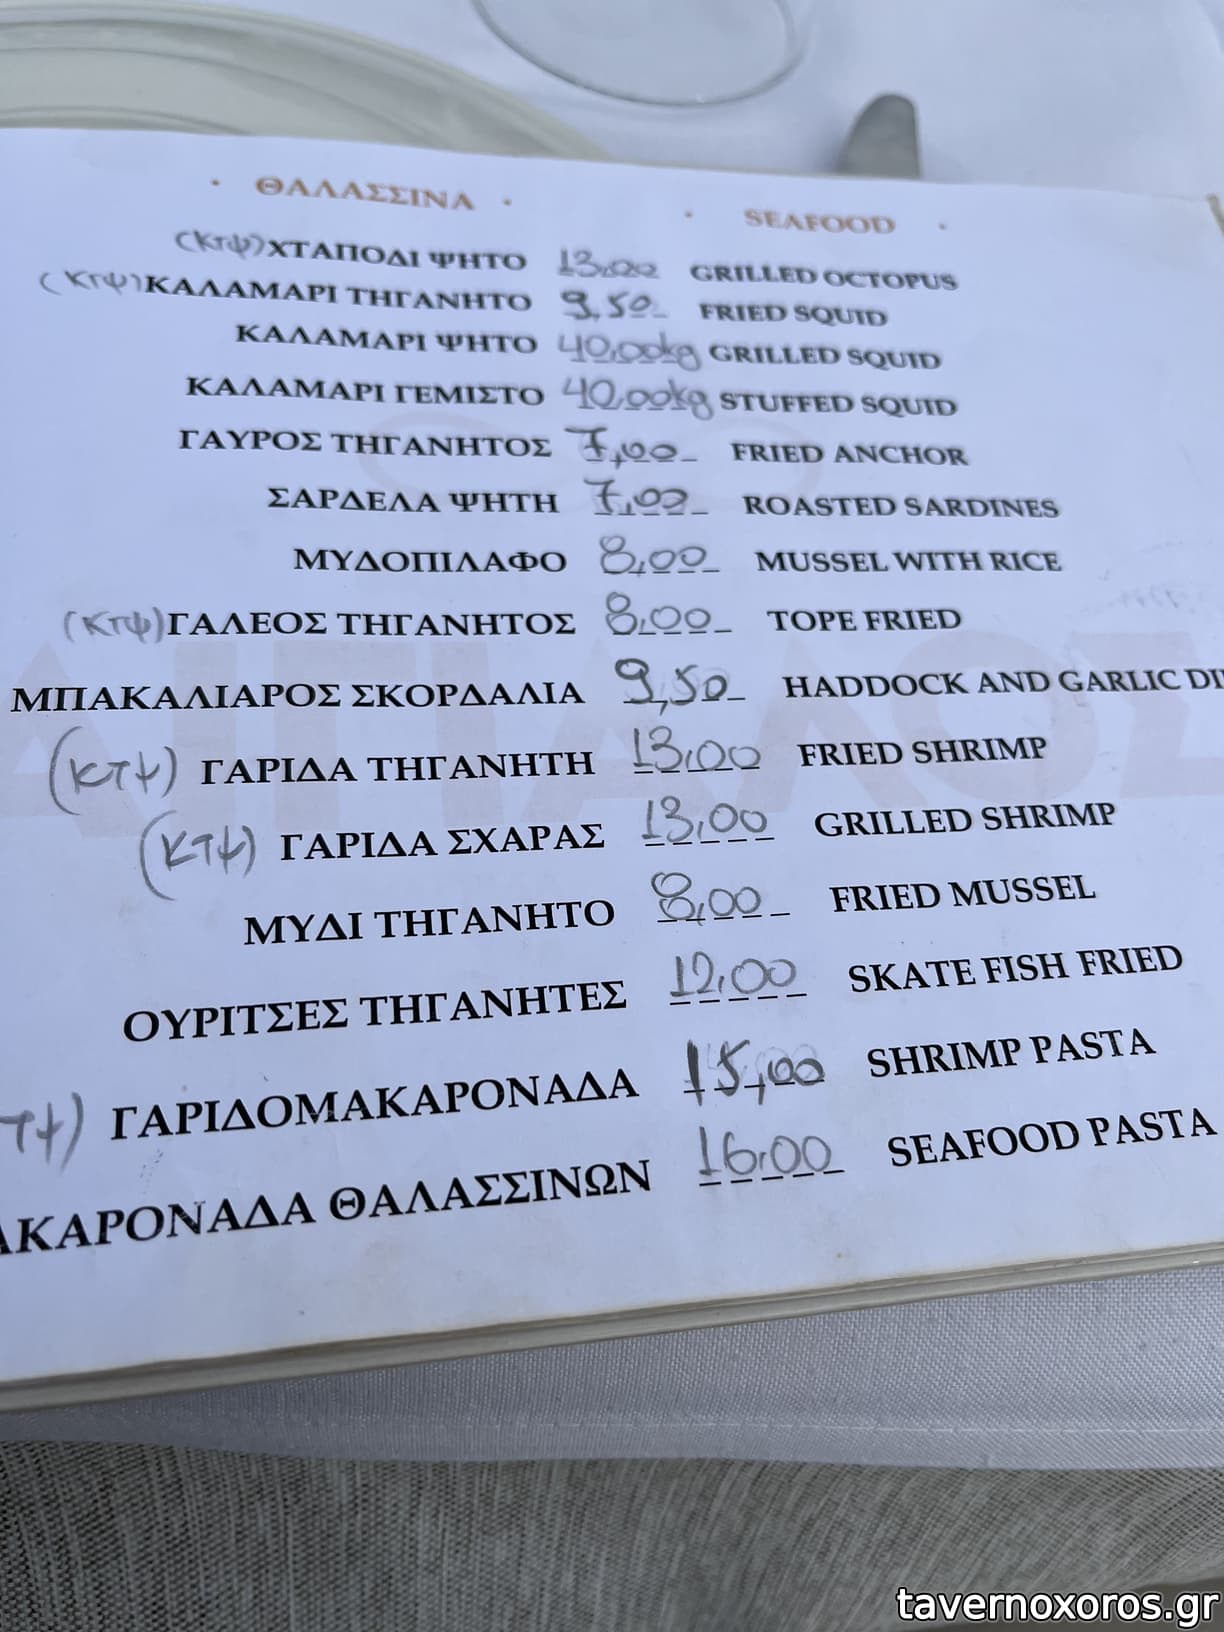 · ΘΑΛΑΣΣΙΝΑ · · SEAFOOD ·
(κτψ) ΧΤΑΠΟΔΙ ΨΗΤΟ 13,00 GRILLED OCTOPUS
(κτψ) ΚΑΛΑΜΑΡΙ ΤΗΓΑΝΗΤΟ 9,50 FRIED SQUID
ΚΑΛΑΜΑΡΙ ΨΗΤΟ 40,00kg GRILLED SQUID
ΚΑΛΑΜΑΡΙ ΓΕΜΙΣΤΟ 40,00kg STUFFED SQUID
ΓΑΥΡΟΣ ΤΗΓΑΝΗΤΟΣ 7,00 FRIED ANCHOR
ΣΑΡΔΕΛΑ ΨΗΤΗ 7,00 ROASTED SARDINES
ΜΥΔΟΠΙΛΑΦΟ 8,00 MUSSEL WITH RICE
(κτψ) ΓΑΛΕΟΣ ΤΗΓΑΝΗΤΟΣ 8,00 TOPE FRIED
ΜΠΑΚΑΛΙΑΡΟΣ ΣΚΟΡΔΑΛΙΑ 9,50 HADDOCK AND GARLIC DI
(κτψ) ΓΑΡΙΔΑ ΤΗΓΑΝΗΤΗ 13,00 FRIED SHRIMP
(κτψ) ΓΑΡΙΔΑ ΣΧΑΡΑΣ 13,00 GRILLED SHRIMP
ΜΥΔΙ ΤΗΓΑΝΗΤΟ 8,00 FRIED MUSSEL
ΟΥΡΙΤΣΕΣ ΤΗΓΑΝΗΤΕΣ 12,00 SKATE FISH FRIED
τψ) ΓΑΡΙΔΟΜΑΚΑΡΟΝΑΔΑ 15,00 SHRIMP PASTA
ΑΚΑΡΟΝΑΔΑ ΘΑΛΑΣΣΙΝΩΝ 16,00 SEAFOOD PASTA
tavernoxoros.gr